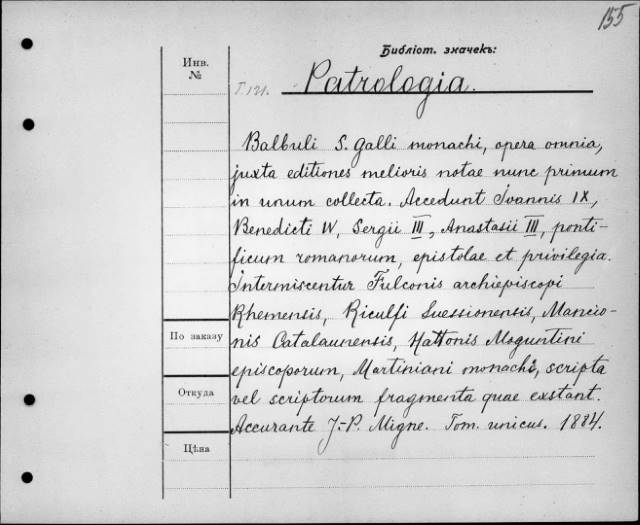 155
Библіот. значекъ:
Инв.
№
Т. 131. Patrologia.
Balbuli S. Galli monachi, opera omnia,
juxta editiones melioris notae nunc primum
in unum collecta. Accedunt Ioannis IX,
Benedicti IV, Sergii III, Anastasii III, ponti-
ficum romanorum, epistolae et privilegia.
Intermiscentur Fulconis archiepiscopi
Rhemensis, Riculfi Suessionensis, Mancio-
nis Catalaunensis, Hattonis Moguntini
episcoporum, Martiniani monachi, scripta
vel scriptorum fragmenta quae exstant.
Accurante J.-P. Migne. Tom. unicus. 1884.
По заказу
Откуда
Цѣна